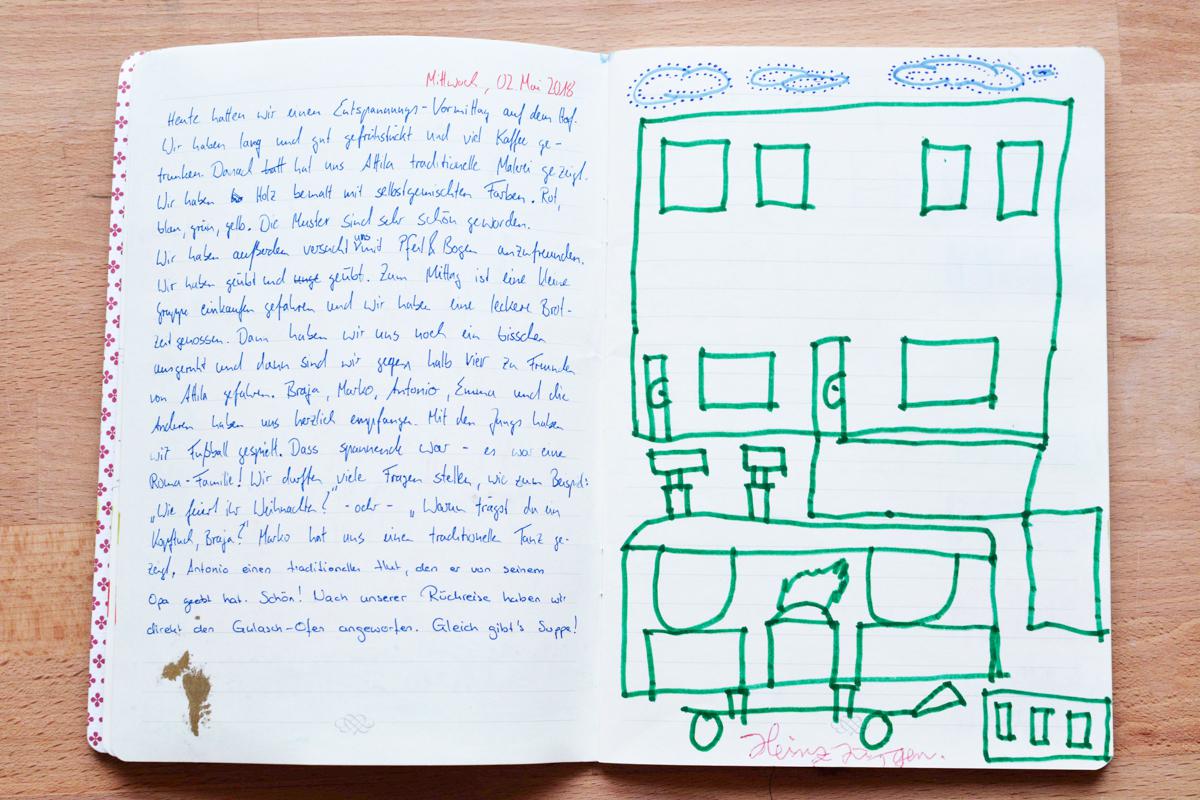 Mittwoch, 02. Mai 2018
Heute hatten wir einen Entspannungs-Vormittag auf dem Hof.
Wir haben lang und gut gefrühstückt und viel Kaffee ge-
trunken. Danach hat uns Attila traditionelle Malerei gezeigt.
Wir haben Holz bemalt mit selbstgemischten Farben. Rot,
blau, grün, gelb. Die Muster sind sehr schön geworden.
Wir haben außerdem versucht uns mit Pfeil & Bogen anzufreunden.
Wir haben geübt und geübt. Zum Mittag ist eine kleine
Gruppe einkaufen gefahren und wir haben eine leckere Brot-
zeit genossen. Dann haben wir uns noch ein bisschen
ausgeruht und dann sind wir gegen halb vier zu Freunden
von Attila gefahren. Braja, Marko, Antonio, Emma und die
Anderen haben uns herzlich empfangen. Mit den Jungs haben
wir Fußball gespielt. Dass spannende war - es war eine
Roma-Familie! Wir durften viele Fragen stellen, wie zum Beispiel:
„Wie feiert ihr Weihnachten?" - oder - „Warum trägst du ein
Kopftuch, Braja?" Marko hat uns einen traditionellen Tanz ge-
zeigt, Antonio einen traditionellen Hut, den er von seinem
Opa geerbt hat. Schön! Nach unserer Rückreise haben wir
direkt den Gulasch-Ofen angeworfen. Gleich gibt's Suppe!
Heinz Jürgen.